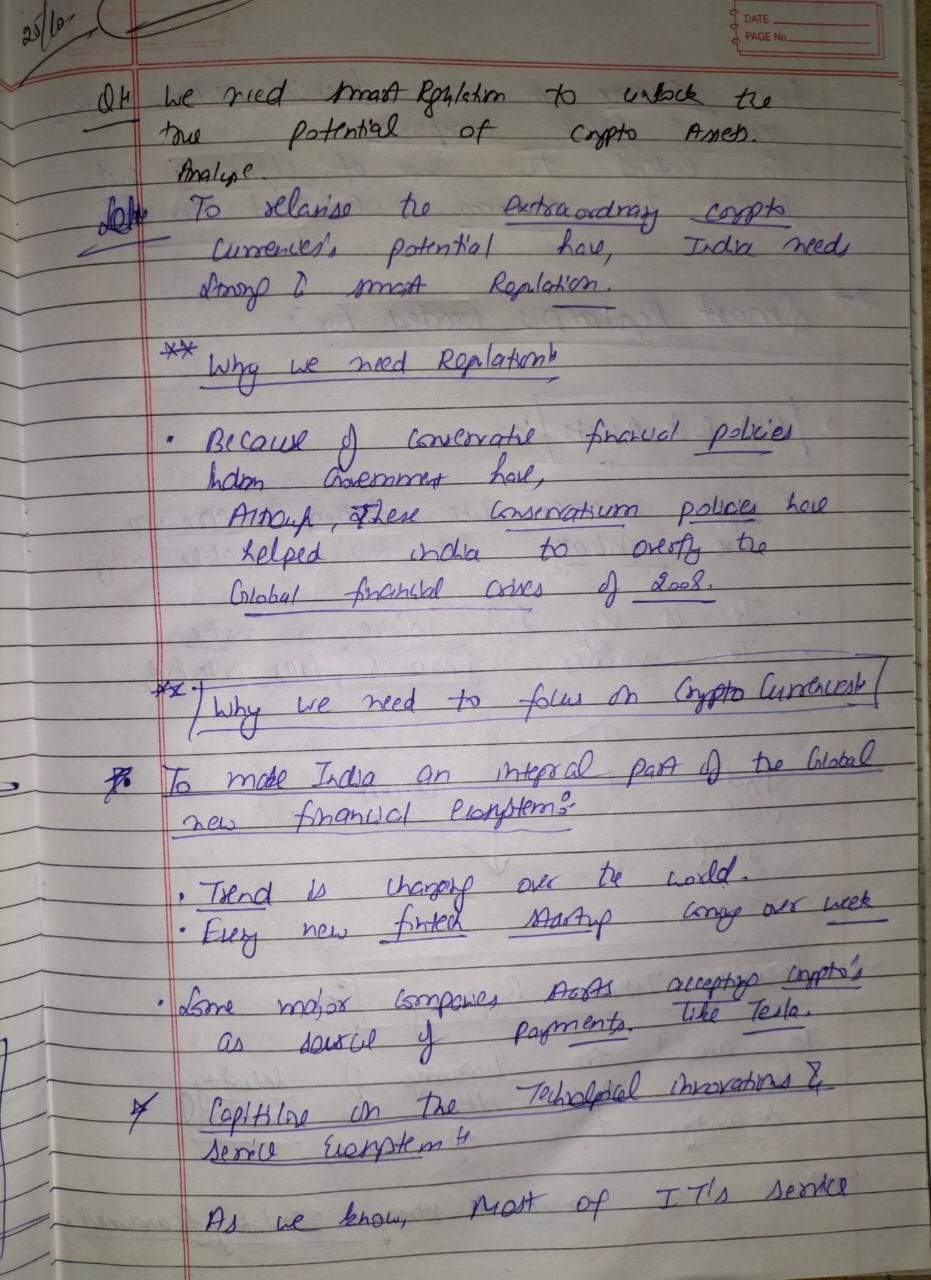 25/10
DATE
PAGE No.
QH We need smart Regulation to unlock the
true potential of Crypto Assets.
Analyse.
To relarise the extraordinary crypto
Currences's potential have, India needs
strong & smart Regulation.
** Why we need Regulation
• Because of conservative financial policies
Indian Government have,
Although, these conservatism policies have
helped india to overfly the
Global financial crises of 2008.
** Why we need to focus on Crypto Currences
To make India an integral part of the Global
new financial Ecosystem:-
• Trend is changing over the world.
• Every new fintech startup coming over week
• Some major companies starts accepting crypto's
as source of payments. like Tesla.
on the Technological innovations &
service Ecosystem
As we know, Most of IT's service